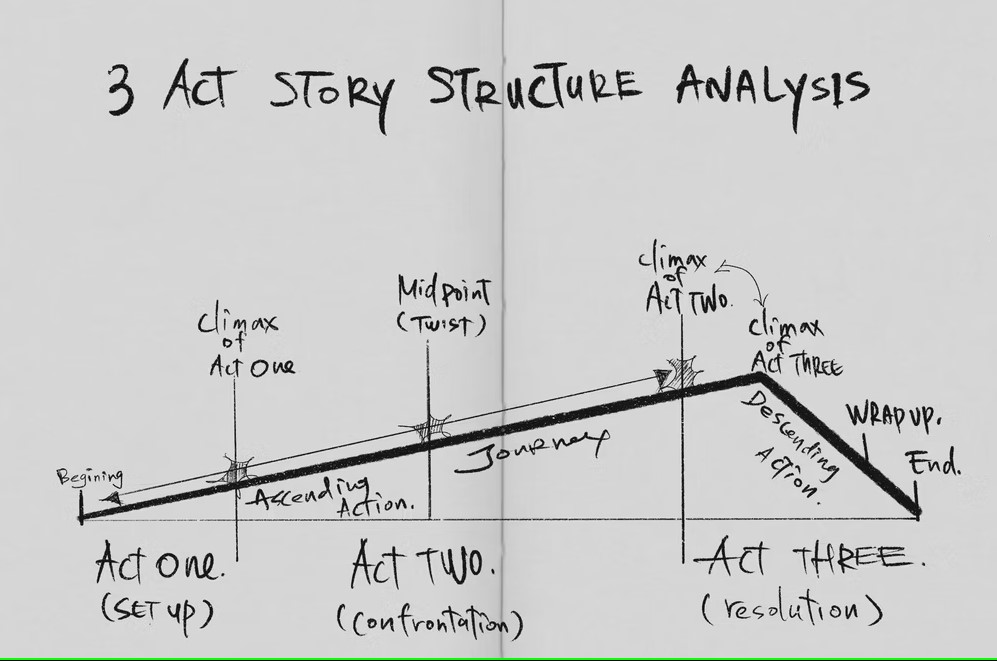 3 ACT STORY STRUCTURE ANALYSIS
climax
of
Act TWO.
Midpoint
(TWIST)
climax
of
Act One
climax
of
Act THREE
Begining
Ascending
Action.
Journey
Descending
Action.
WRAP UP.
End.
Act One.
(SET UP)
Act TWO.
(confrontation)
Act THREE.
(resolution)